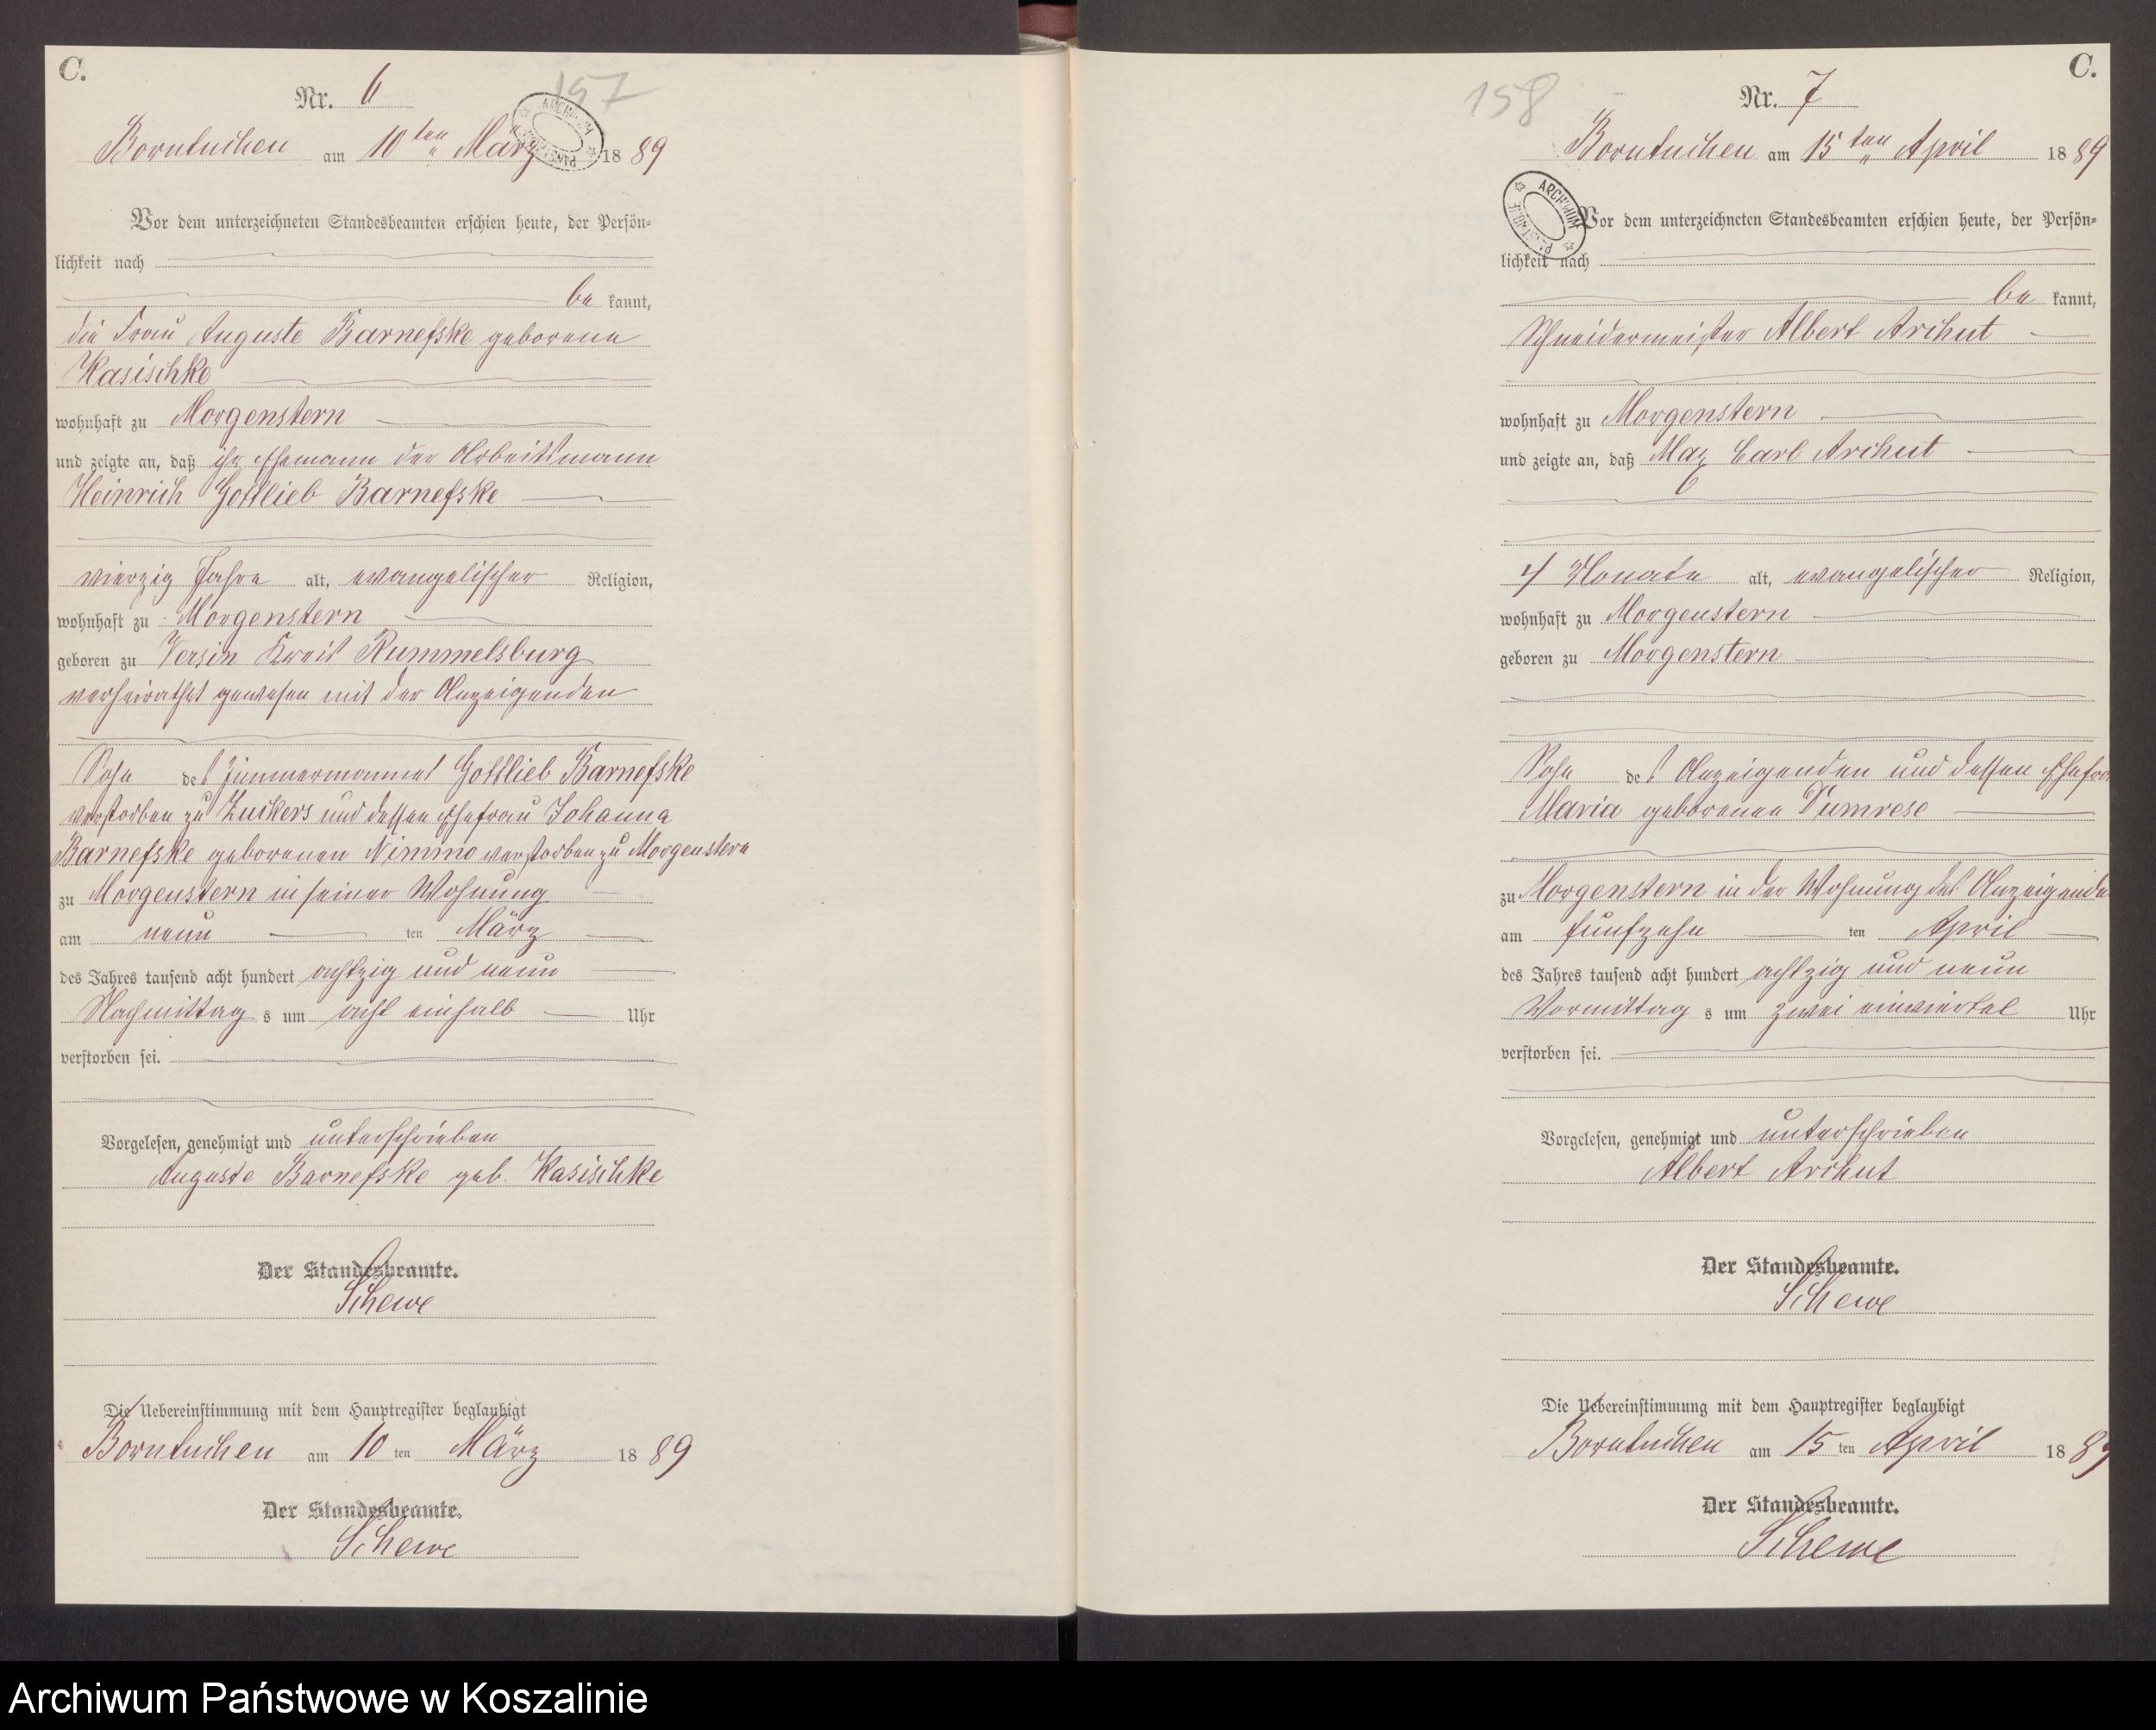 C.
Nr. 6
157
Borntuchen am 10ten März 1889
Vor dem unterzeichneten Standesbeamten erschien heute, der Persön-
lichkeit nach
be kannt,
die Frau Auguste Barnefske geborene
Kasischke
wohnhaft zu Morgenstern
und zeigte an, daß ihr Ehemann der Arbeitsmann
Heinrich Gottlieb Barnefske
vierzig Jahre alt, evangelischer Religion,
wohnhaft zu Morgenstern
geboren zu Versin Kreis Rummelsburg
verheirathet gewesen mit der Anzeigenden
Sohn des Zimmermannes Gottlieb Barnefske
verstorben zu Zuckers und dessen Ehefrau Johanna
Barnefske geborenen Nimmo verstorben zu Morgenstern
zu Morgenstern in seiner Wohnung
am neun ten März
des Jahres tausend acht hundert achtzig und neun
Nachmittag s um acht einhalb Uhr
verstorben sei.
Vorgelesen, genehmigt und unterschrieben
Auguste Barnefske geb. Kasischke
Der Standesbeamte.
Schewe
Die Uebereinstimmung mit dem Hauptregister beglaubigt
Borntuchen am 10 ten März 1889
Der Standesbeamte.
Schewe
C.
Nr. 7
158
Borntuchen am 15ten April 1889
ARCHIWUM
Vor dem unterzeichneten Standesbeamten erschien heute, der Persön-
lichkeit nach
be kannt,
Schneidermeister Albert Archut
wohnhaft zu Morgenstern
und zeigte an, daß Max Carl Archut
4 Monate alt, evangelischer Religion,
wohnhaft zu Morgenstern
geboren zu Morgenstern
Sohn des Anzeigenden und dessen Ehefrau
Maria geborenen Dumrese
zu Morgenstern in der Wohnung des Anzeigende
am fünfzehn ten April
des Jahres tausend acht hundert achtzig und neun
Vormittag s um zwei einviertel Uhr
verstorben sei.
Vorgelesen, genehmigt und unterschrieben
Albert Archut
Der Standesbeamte.
Schewe
Die Uebereinstimmung mit dem Hauptregister beglaubigt
Borntuchen am 15 ten April 1889
Der Standesbeamte.
Schewe
Archiwum Państwowe w Koszalinie